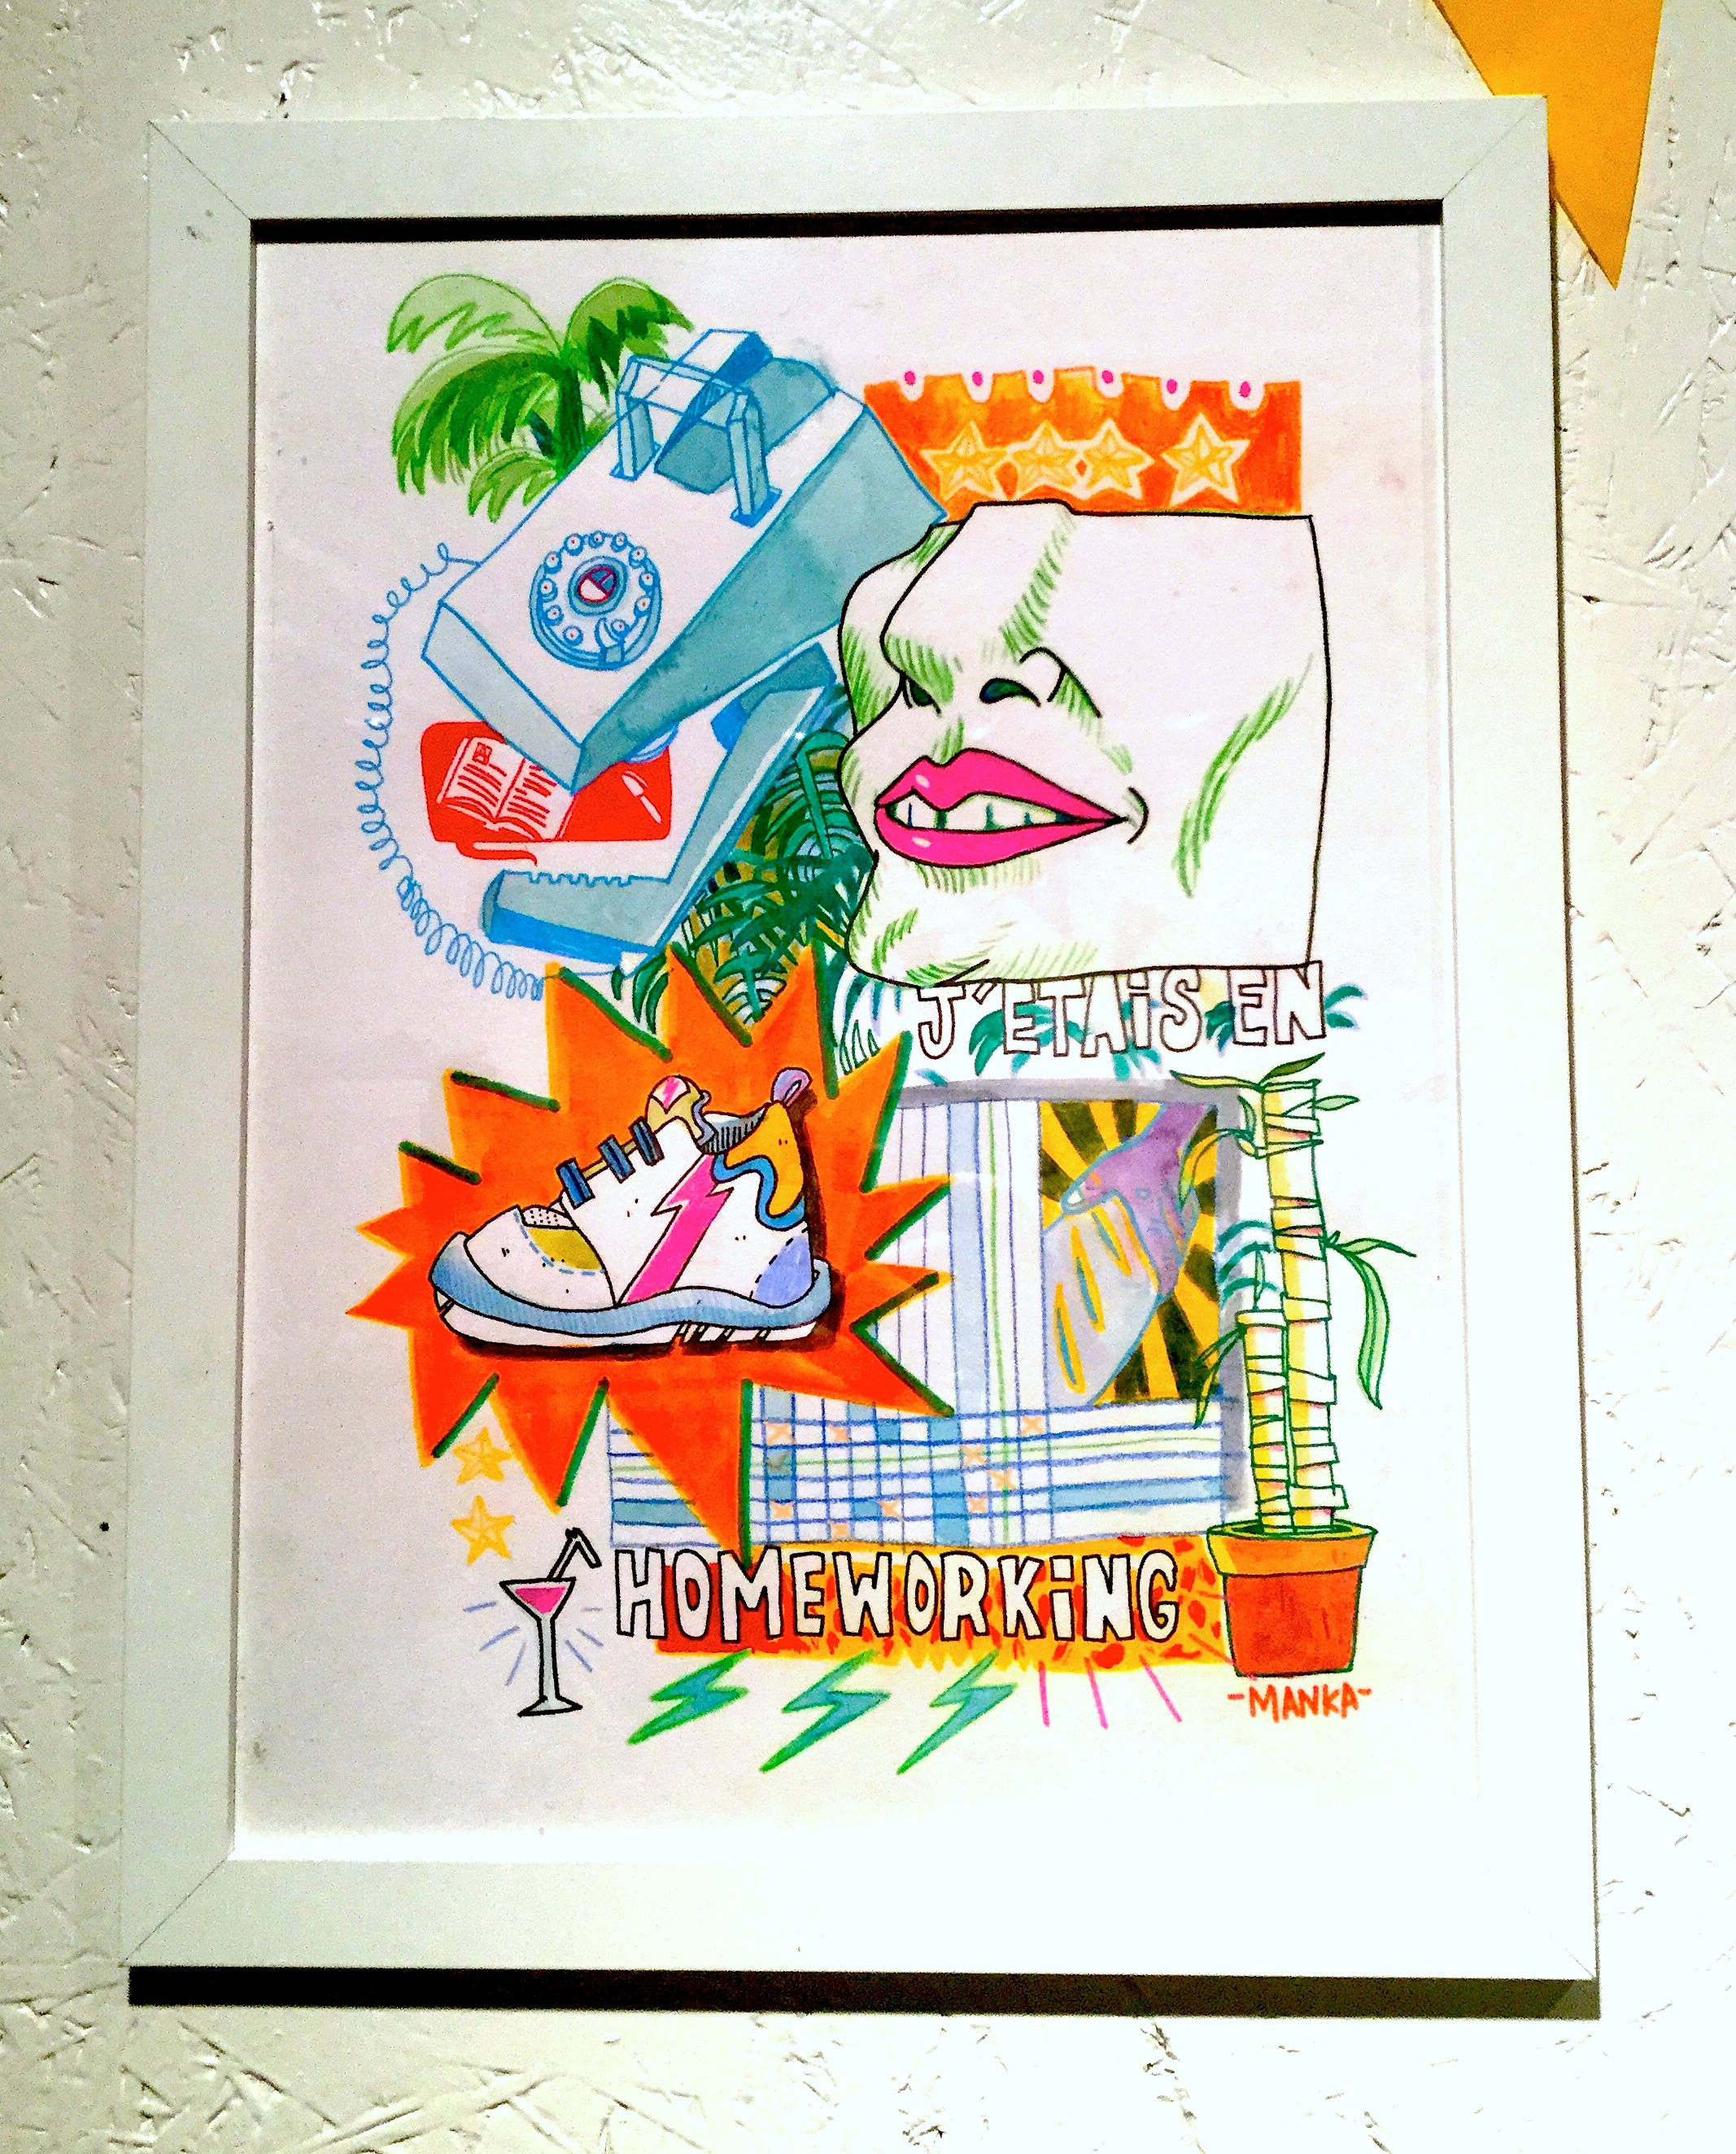 J'ETAiS EN
HOMEWORKiNG
-MANKA-